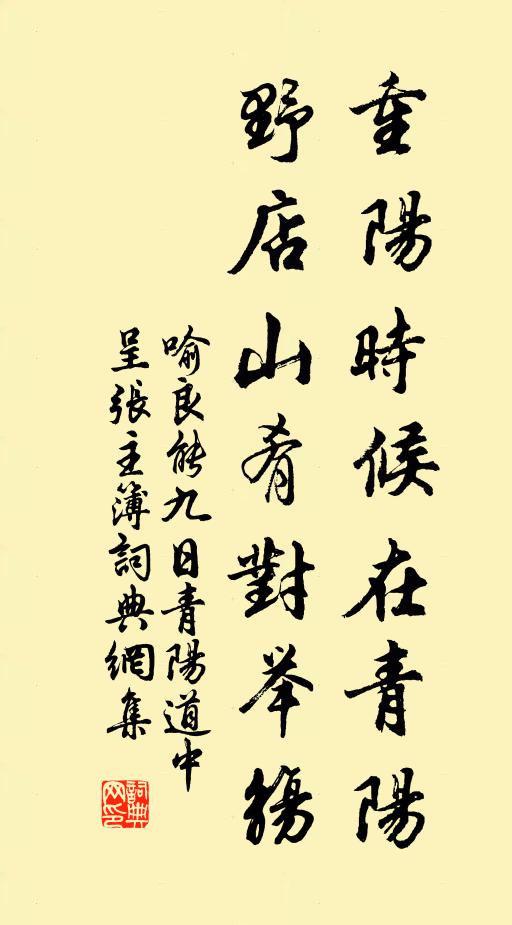 重陽時候在青陽
野店山肴對举觴
喻良能九日青陽道中
呈張主簿詞典網集
詞典
网印